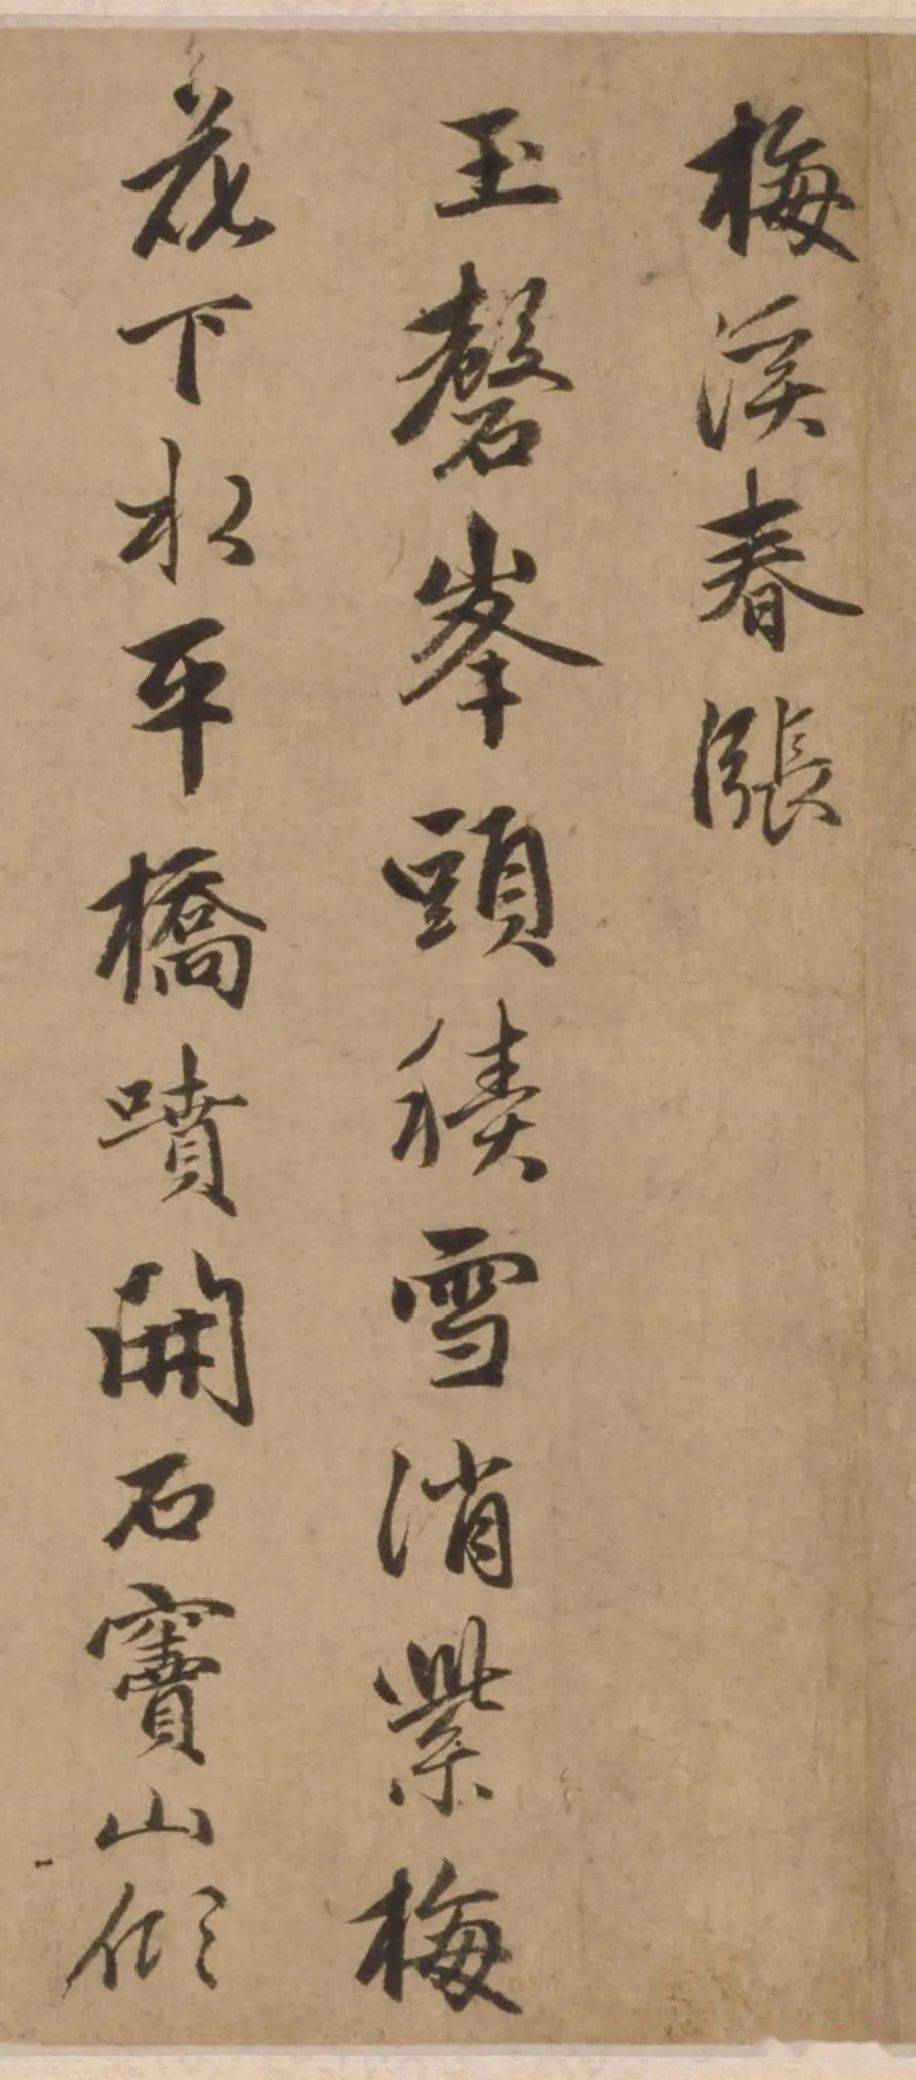 梅溪春漲
玉磬峯頭積雪消紫梅
花下水平橋噴開石竇山傾